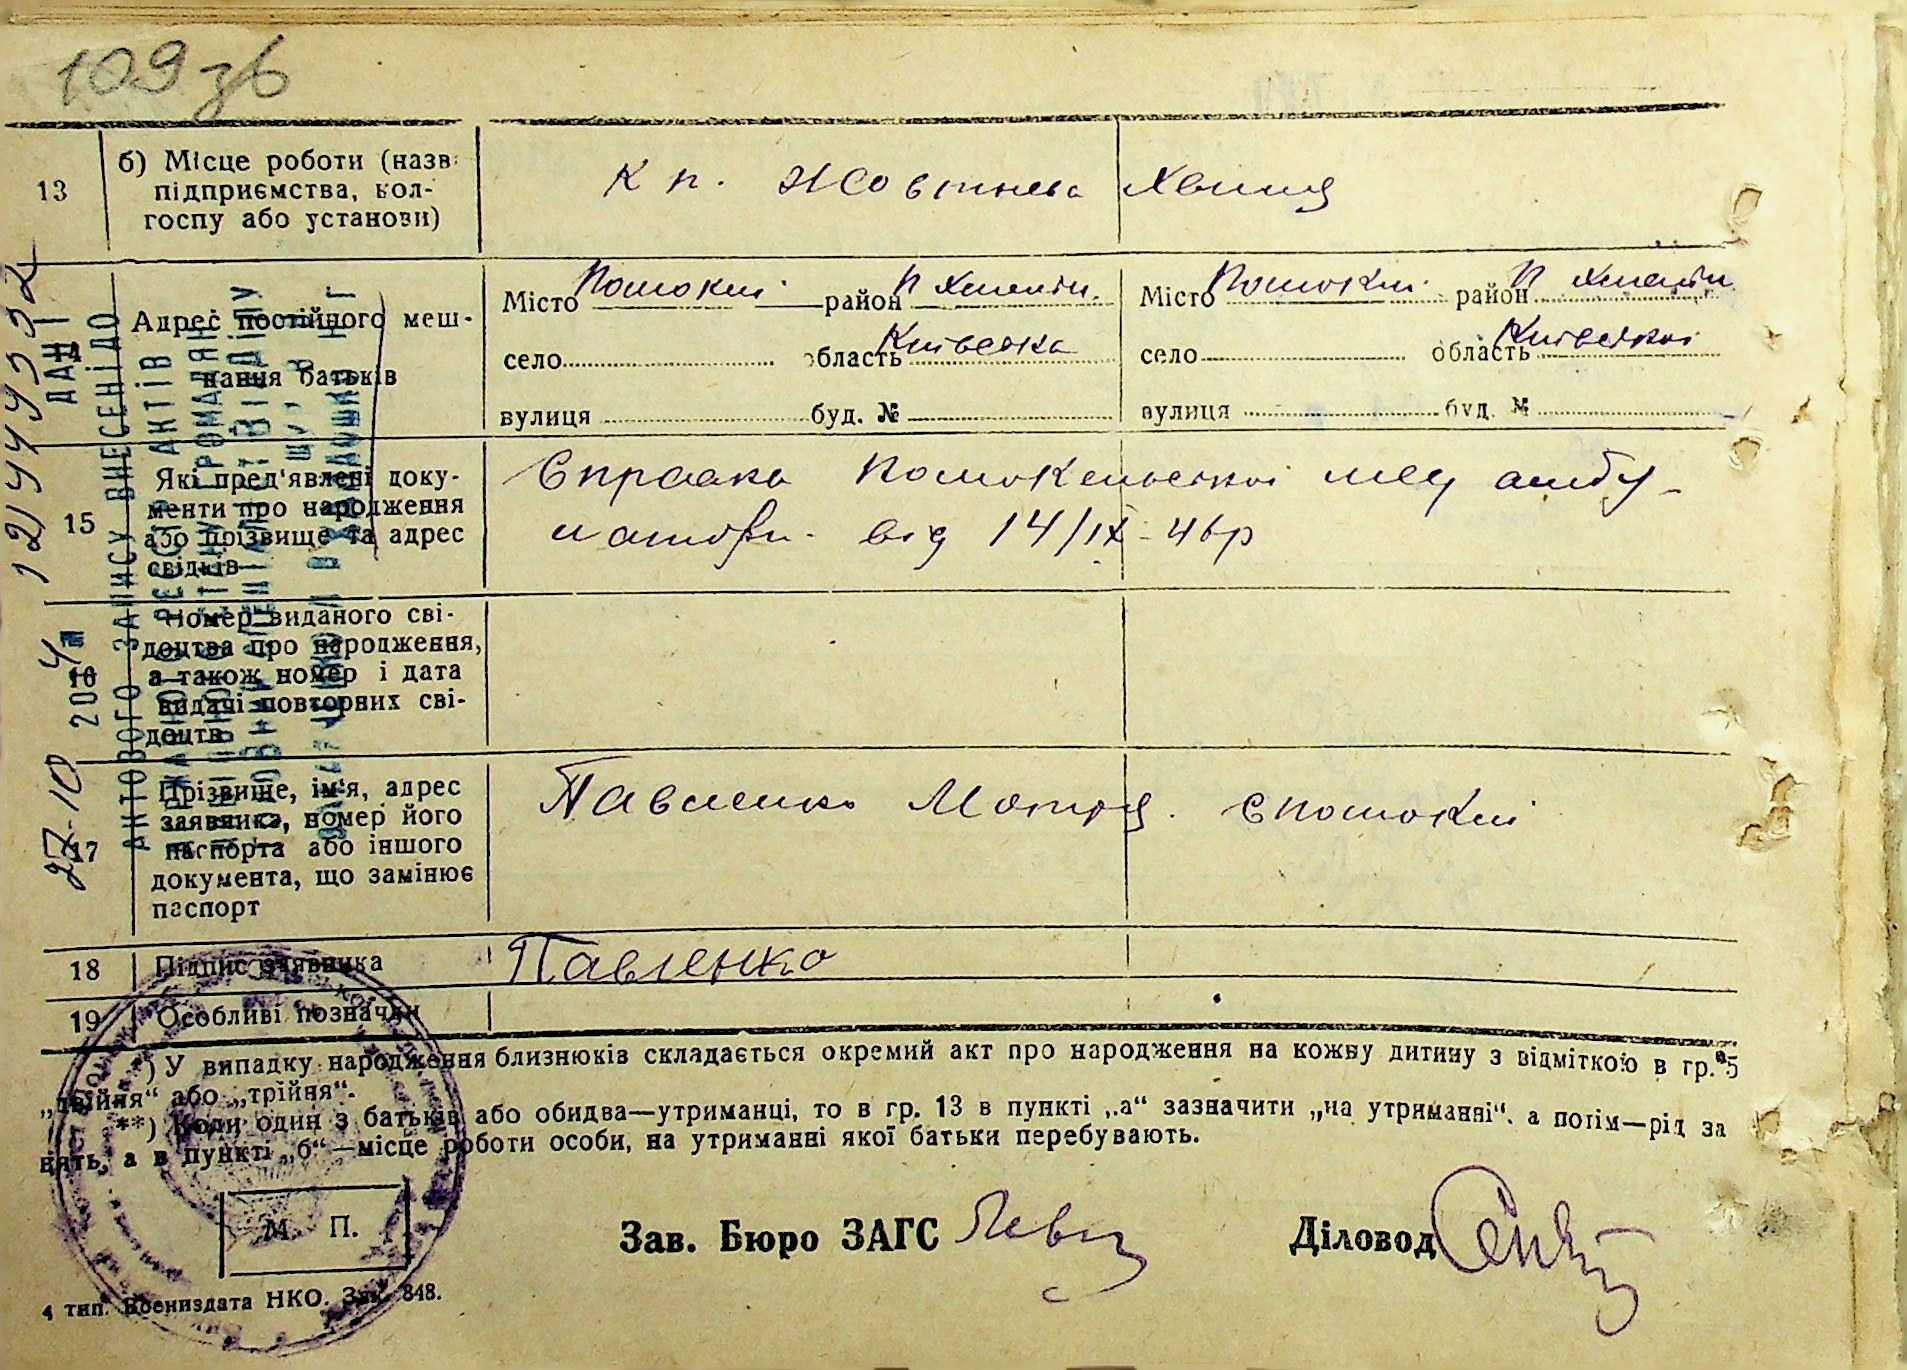 109 зв
13
б) Місце роботи (назв
підприємства, кол-
госпу або установи)
К п. Жовтнева Хвиля
14
Адрес постійного меш-
кання батьків
Місто район П Хмельн.
село область Київська
вулиця буд. №
Місто район П Хмельн
село область Київської
вулиця буд. №
15
Які пред'явлені доку-
менти про народження
або прізвище та адрес
свідків
Справка мед амбу-
латорн. від 14/IX-46р
16
Номер виданого сві-
доцтва про народження,
а також номер і дата
видачі повторних сві-
доцтв
17
Прізвище, ім'я, адрес
заявника, номер його
паспорта або іншого
документа, що замінює
паспорт
Павленко Мотря.
18
Підпис заявника
Павленко
19
Особливі позначки
*) У випадку народження близнюків складається окремий акт про народження на кожну дитину з відміткою в гр. 5
„двійня“ або „трійня“.
**) Коли один з батьків або обидва—утриманці, то в гр. 13 в пункті „а“ зазначити „на утриманні“, а потім—рід за
нять, а в пункті „б“—місце роботи особи, на утриманні якої батьки перебувають.
М. П.
Зав. Бюро ЗАГС
Діловод
4 тип. Воениздата НКО. Зак. 848.
ДАНІ
АКТОВОГО ЗАПИСУ ВНЕСЕНІ ДО
27-10 200